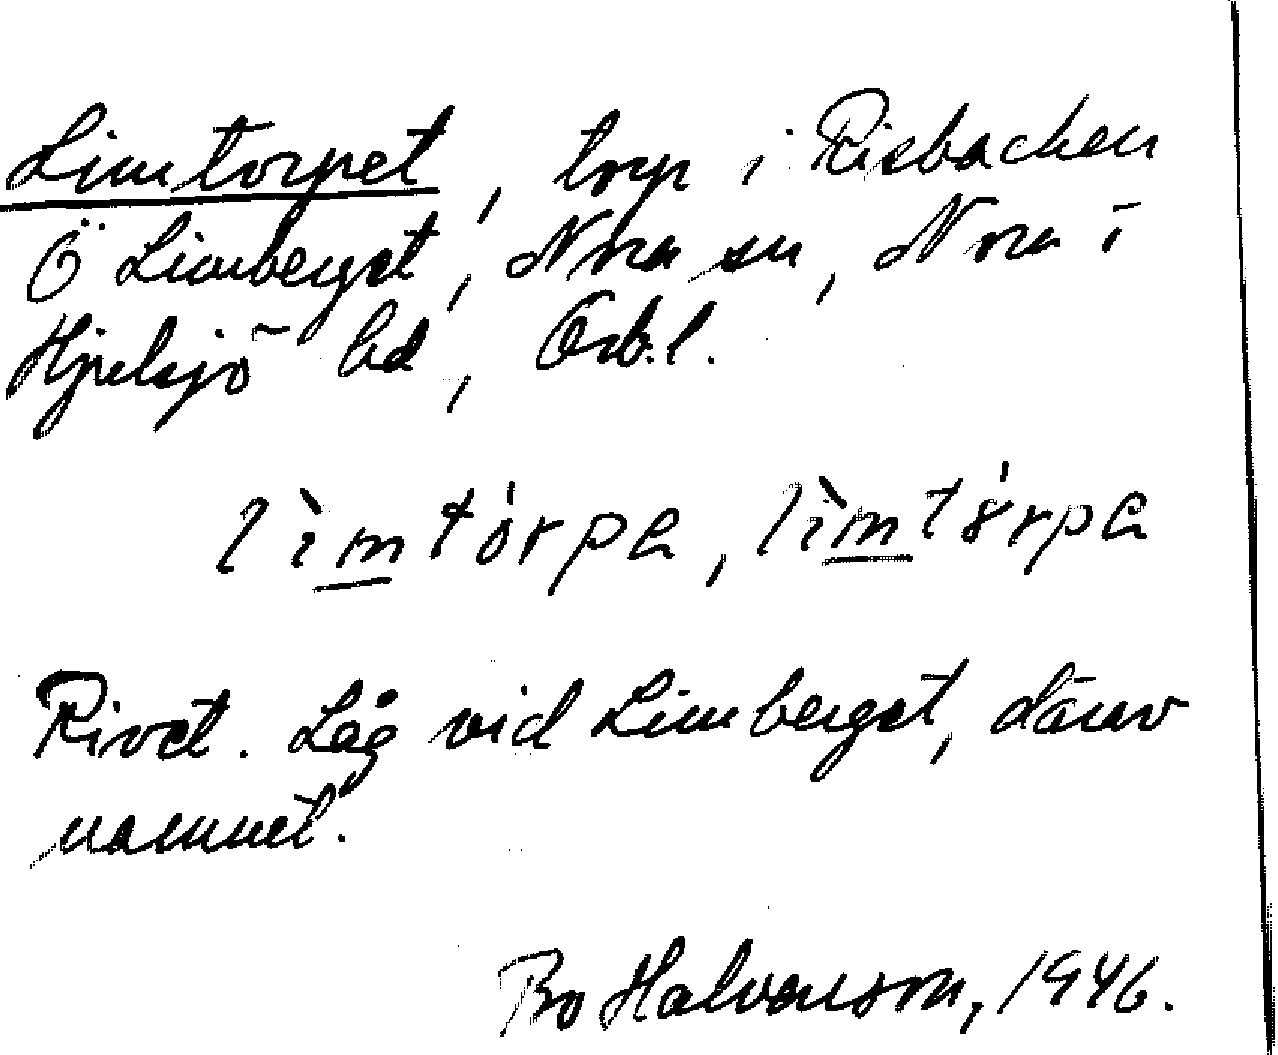 Limtorpet, torp i Risbacken
Ö Limberget, Nora sn, Nora i
Hjulsjö bd, Örb.l.
lìmtórpa, lìmtórpa
Rivet. Låg vid Limberget, därav
namnet.
Bo Halvarson, 1946.